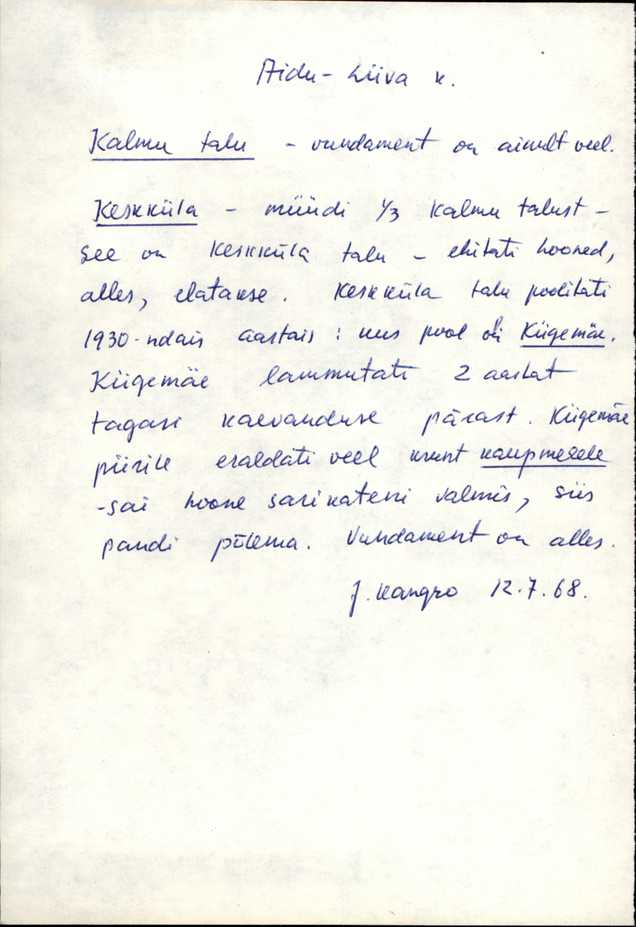 Aidu-Liiva k.
Kalmu talu - vundament on ainult veel.
Keskküla - müüdi 1/3 Kalmu talust -
see on Keskküla talu - ehitati hooned,
alles, elatakse. Keskküla talu poolitati
1930-ndais aastais : uus pool oli Kiigemäe.
Kiigemäe lammutati 2 aastat
tagasi kaevanduse pärast. Kiigemäe
piirile eraldati veel krunt kaupmehele
- sai hoone sarikateni valmis, siis
pandi põlema. Vundament on alles.
J. Kangro 12.7.68.